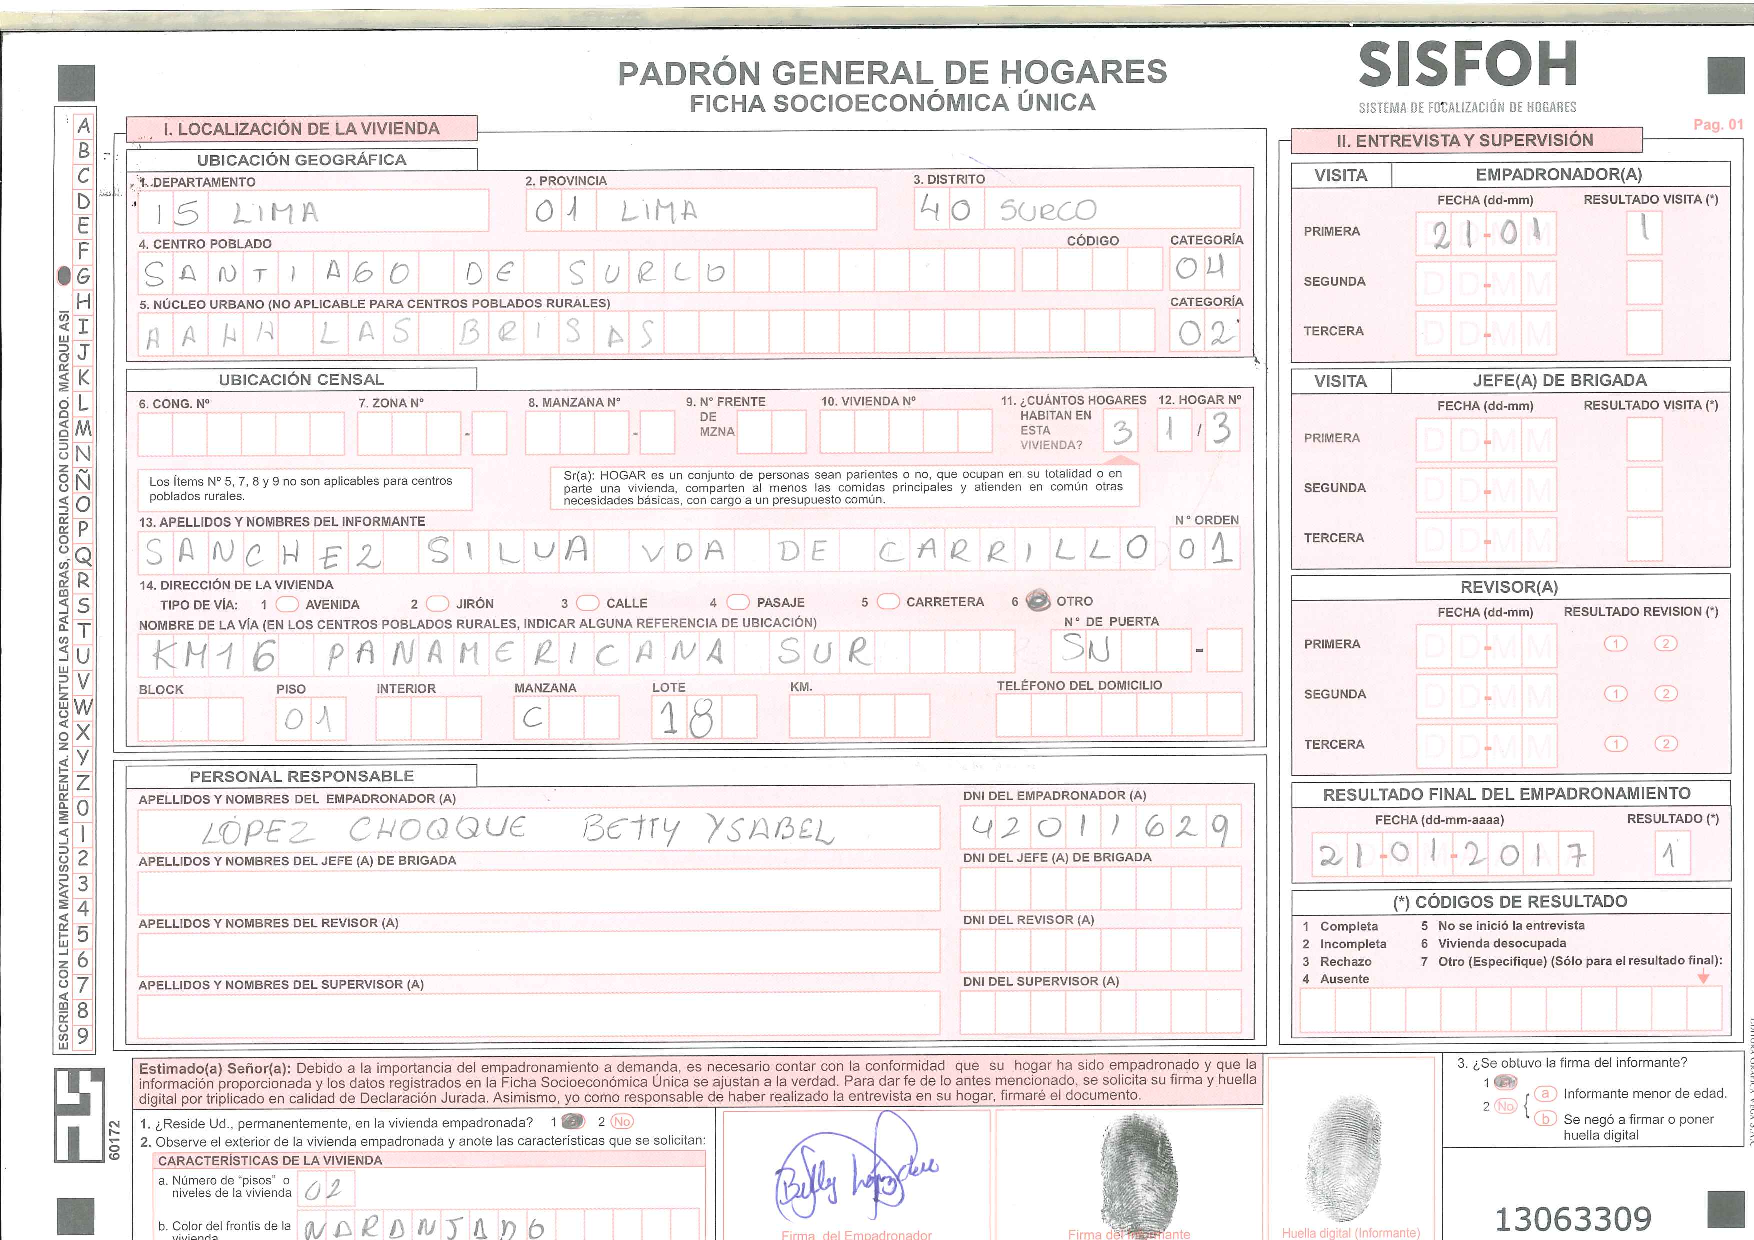 PADRÓN GENERAL DE HOGARES
FICHA SOCIOECONÓMICA ÚNICA
SISFOH
SISTEMA DE FOCALIZACIÓN DE HOGARES
Pag. 01
ESCRIBA CON LETRA MAYUSCULA IMPRENTA. NO ACENTUE LAS PALABRAS, CORRIJA CON CUIDADO. MARQUE ASI
A B C D E F G H I J K L M N Ñ O P Q R S T U V W X Y Z 0 1 2 3 4 5 6 7 8 9
I. LOCALIZACIÓN DE LA VIVIENDA
UBICACIÓN GEOGRÁFICA
1. DEPARTAMENTO 2. PROVINCIA 3. DISTRITO
15 LIMA 01 LIMA 40 SURCO
4. CENTRO POBLADO CÓDIGO CATEGORÍA
SANTIAGO DE SURCO 04
5. NÚCLEO URBANO (NO APLICABLE PARA CENTROS POBLADOS RURALES) CATEGORÍA
AAHH LAS BRISAS 02
UBICACIÓN CENSAL
6. CONG. Nº 7. ZONA Nº 8. MANZANA Nº 9. Nº FRENTE DE MZNA 10. VIVIENDA Nº 11. ¿CUÁNTOS HOGARES HABITAN EN ESTA VIVIENDA? 12. HOGAR Nº
3 1 / 3
Los Ítems Nº 5, 7, 8 y 9 no son aplicables para centros
poblados rurales.
Sr(a): HOGAR es un conjunto de personas sean parientes o no, que ocupan en su totalidad o en
parte una vivienda, comparten al menos las comidas principales y atienden en común otras
necesidades básicas, con cargo a un presupuesto común.
13. APELLIDOS Y NOMBRES DEL INFORMANTE Nº ORDEN
SANCHEZ SILVA VDA DE CARRILLO 01
14. DIRECCIÓN DE LA VIVIENDA
TIPO DE VÍA: 1 AVENIDA 2 JIRÓN 3 CALLE 4 PASAJE 5 CARRETERA 6 OTRO
NOMBRE DE LA VÍA (EN LOS CENTROS POBLADOS RURALES, INDICAR ALGUNA REFERENCIA DE UBICACIÓN) Nº DE PUERTA
KM16 PANAMERICANA SUR SN -
BLOCK PISO INTERIOR MANZANA LOTE KM. TELÉFONO DEL DOMICILIO
01 C 18
PERSONAL RESPONSABLE
APELLIDOS Y NOMBRES DEL EMPADRONADOR (A) DNI DEL EMPADRONADOR (A)
LÓPEZ CHOQQUE BETTY YSABEL 42011629
APELLIDOS Y NOMBRES DEL JEFE (A) DE BRIGADA DNI DEL JEFE (A) DE BRIGADA
APELLIDOS Y NOMBRES DEL REVISOR (A) DNI DEL REVISOR (A)
APELLIDOS Y NOMBRES DEL SUPERVISOR (A) DNI DEL SUPERVISOR (A)
II. ENTREVISTA Y SUPERVISIÓN
VISITA EMPADRONADOR(A)
FECHA (dd-mm) RESULTADO VISITA (*)
PRIMERA 21-01 1
SEGUNDA DD-MM
TERCERA DD-MM
VISITA JEFE(A) DE BRIGADA
FECHA (dd-mm) RESULTADO VISITA (*)
PRIMERA DD-MM
SEGUNDA DD-MM
TERCERA DD-MM
REVISOR(A)
FECHA (dd-mm) RESULTADO REVISION (*)
PRIMERA DD-MM 1 2
SEGUNDA DD-MM 1 2
TERCERA DD-MM 1 2
RESULTADO FINAL DEL EMPADRONAMIENTO
FECHA (dd-mm-aaaa) RESULTADO (*)
21-01-2017 1
(*) CÓDIGOS DE RESULTADO
1 Completa 5 No se inició la entrevista
2 Incompleta 6 Vivienda desocupada
3 Rechazo 7 Otro (Especifique) (Sólo para el resultado final):
4 Ausente
Estimado(a) Señor(a): Debido a la importancia del empadronamiento a demanda, es necesario contar con la conformidad que su hogar ha sido empadronado y que la
información proporcionada y los datos registrados en la Ficha Socioeconómica Única se ajustan a la verdad. Para dar fe de lo antes mencionado, se solicita su firma y huella
digital por triplicado en calidad de Declaración Jurada. Asimismo, yo como responsable de haber realizado la entrevista en su hogar, firmaré el documento.
1. ¿Reside Ud., permanentemente, en la vivienda empadronada? 1 2 No
2. Observe el exterior de la vivienda empadronada y anote las características que se solicitan:
CARACTERÍSTICAS DE LA VIVIENDA
a. Número de "pisos" o
niveles de la vivienda 02
b. Color del frontis de la
vivienda NARANJADO
Firma del Empadronador
Firma del Informante
Huella digital (Informante)
3. ¿Se obtuvo la firma del informante?
1
2 No
a Informante menor de edad.
b Se negó a firmar o poner
huella digital
60172
13063309